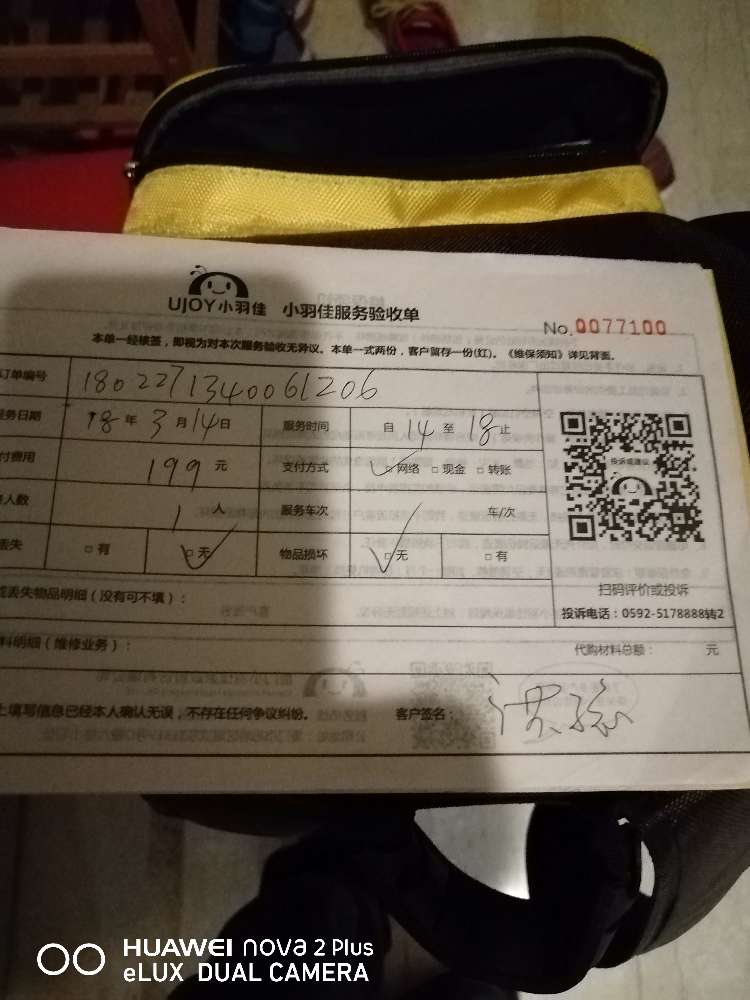 UJOY小羽佳 小羽佳服务验收单
No.0077100
本单一经核签，即视为对本次服务验收无异议。本单一式两份，客户留存一份(红)。《维保须知》详见背面。
订单编号 1802271340061206
服务日期 18年3月14日 服务时间 自14至18止
付费用 199元 支付方式 ☑网络 □现金 □转账
人数 1人 服务车次 车/次
丢失 □有 ☑无 物品损坏 ☑无 □有
投诉或建议
扫码评价或投诉
投诉电话：0592-5178888转2
或丢失物品明细（没有可不填）：
料明细（维修业务）： 代购材料总额： 元
上填写信息已经本人确认无误，不存在任何争议纠纷。 客户签名：
HUAWEI nova 2 Plus
eLUX DUAL CAMERA